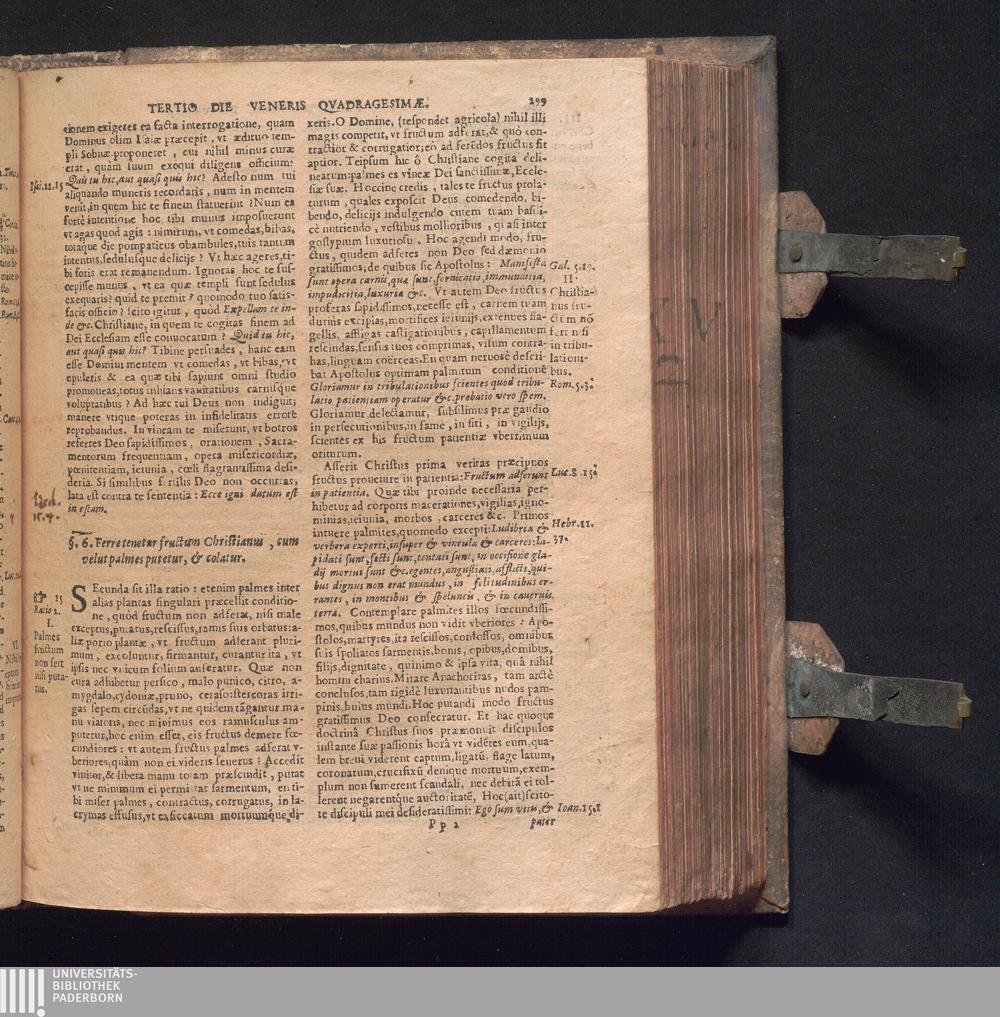 TERTIO DIE VENERIS QVADRAGESIMÆ.
299
tionem exigeres ea facta interrogatione, quam
Dominus olim Isaiæ præcepit, vt ædituo tem-
pli Sobnæ proponeret, cui nihil minus curæ
erat, quàm suum exequi diligens officium:
Quis tu hic, aut quasi quis hic? Adesto num tui
aliquando muneris recordaris, num in mentem
venit, in quem hic te finem statuerint? Num ea
fortè intentione hoc tibi munus imposuerunt
vt agas quod agis: nimirum, vt comedas, bibas,
totaque die pompaticus obambules, tuis tantum
intentus, sedulusque delicijs? Vt hæc ageres, ti-
bi foris erat remanendum. Ignoras hoc te sus-
cepisse munus, vt ea quæ templi sunt sedulus
exequaris? quid te premit? quomodo tuo satis-
facis officio? scito igitur, quòd Expellam te in-
de &c. Christiane, in quem te cogitas finem ad
Dei Ecclesiam esse conuocatum? Quid tu hic,
aut quasi quis hic? Tibine persuades, hanc eam
esse Domini mentem vt comedas, vt bibas, vt
epuleris & ea quæ tibi sapiunt omni studio
promoueas, totus inhians vanitatibus carnisque
voluptatibus? Ad hæc tui Deus non indiguit;
manere vtique poteras in infidelitatis errore
reprobandus. In vineam te miserunt, vt botros
referres Deo sapidissimos, orationem, Sacra-
mentorum frequentiam, opera misericordiæ,
pœnitentiam, ieiunia, cœli flagrantissima desi-
deria. Si similibus fertilis Deo non occurras,
lata est contra te sententia: Ecce igni datum est
in escam.
§. 6. Ferre tenetur fructum Christianus, cum
velut palmes putetur, & colatur.
SEcunda sit illa ratio: etenim palmes inter
alias plantas singulari præcellit conditio-
ne, quòd fructum non adferat, nisi male
exceptus, putatus, rescissus, ramis suis orbatus: a-
liæ porio plantæ, vt fructum adferant pluri-
mum, excoluntur, firmantur, curantur ita, vt
ipsis nec vnicum folium auferatur. Quæ non
cura adhibetur persico, malo punico, citro, a-
mygdalo, cydoniæ, pruno, ceraso: stercoras irri-
gas sepem circũdas, vt ne quidem tãgantur ma-
nu viatoris, nec minimus eos ramusculus am-
putetur, hoc enim esset, eis fructus demere fœ-
cundiores: vt autem fructus palmes adferat v-
beriores, quàm non ei videris seuerus? Accedit
vinitor, & libera manu totam præscindit, putat
vt ne minimum ei permittat sarmentum, en ti-
bi miser palmes, contractus, corrugatus, in la-
crymas effusus, vt exsiccatum mortuumque di-
Isai. 22. 15
15
Ratio 2.
I.
Palmes
fructum
non fert
nisi puta-
tus.
xeris. O Domine, (respondet agricola) nihil illi
magis competit, vt fructum adferat, & quò con-
tractior & corrugatior; eò ad ferẽdos fructus fit
aptior. Teipsum hic ô Christiane cogita deli-
neatum: palmes es vineæ Dei sanctissimæ, Eccle-
siæ suæ. Hoccine credis, tales te fructus prola-
turum, quales exposcit Deus comedendo, bi-
bendo, delicijs indulgendo cutem tuam basili-
cè nutriendo, vestibus mollioribus, quasi inter
gossypium luxuriosu. Hoc agendi modo, fru-
ctus, quidem adferes non Deo sed dæmonio
gratissimos, de quibus sic Apostolus: Manifesta
sunt opera carnis, quæ sunt, fornicatio, immunditia,
impudicitia, luxuria &c. Vt autem Deo fructus
proferas sapidissimos, necesse est, carnem tuam
durius excipias, mortifices ieiunijs, extenues fla-
gellis, affligas castigationibus, capillamentum
rescindas, sensus tuos comprimas, visum contra-
has, linguam coërceas. En quam neruosè descri-
bat Apostolus optimam palmitum conditionẽ
Gloriamur in tribulationibus scientes quod tribu-
latio patientiam operatur &c. probatio vero spem.
Gloriamur, delectamur, subsilimus præ gaudio
in persecutionibus, in fame, in siti, in vigilijs,
scientes ex his fructum patientiæ vberrimum
oriturum.
Asserit Christus prima veritas præcipuos
fructus prouenire in patientia: Fructum adferunt
in patientia. Quæ tibi proinde necessaria per-
hibetur ad corporis macerationes, vigilias, igno-
minias, ieiunia, morbos, carceres &c. Primos
intuere palmites, quomodo excepti: Ludibria &
verbera experti, insuper & vincula & carceres: la-
pidati sunt, secti sunt, tentati sunt, in occisione gla-
dij mortui sunt &c. egentes, angustiati, afflicti, qui-
bus dignus non erat mundus, in solitudinibus er-
rantes, in montibus & speluncis, & in cauernis
terra. Contemplare palmites illos fœcundissi-
mos, quibus mundus non vidit vberiores: Apo-
stolos, martyres, ita rescissos, confossos, omnibus
suis spoliatos sarmentis, bonis, opibus, domibus,
filijs, dignitate, quinimo & ipsa vita, quâ nihil
homini charius. Mirare Anachoritas, tam arctè
conclusos, tam rigidè luxuriantibus nudos pam-
pinis, huius mundi. Hoc putandi modo fructus
gratissimus Deo consecratur. Et hac quoque
doctrinâ Christus suos præmonuit discipulos
instante suæ passionis horâ vt vidẽtes eum, qua-
lem breui viderent captum, ligatũ, flagellatum,
coronatum, crucifixũ denique mortuum, exem-
plum non sumerent scandali, nec debitã ei tol-
lerent negarentque auctoritatẽ, Hoc (ait) scito-
te discipuli mei desideratissimi: Ego sum vitis, &
Gal. 5. 19.
II
Christia-
nus fru-
ctum nõ
fert nisi
in tribu-
lationi-
bus.
Rom. 5. 3.
Luc. 8. 15
Hebr. 11.
37.
Ioan. 15. 1
Pp 2
pater
UNIVERSITÄTS-
BIBLIOTHEK
PADERBORN